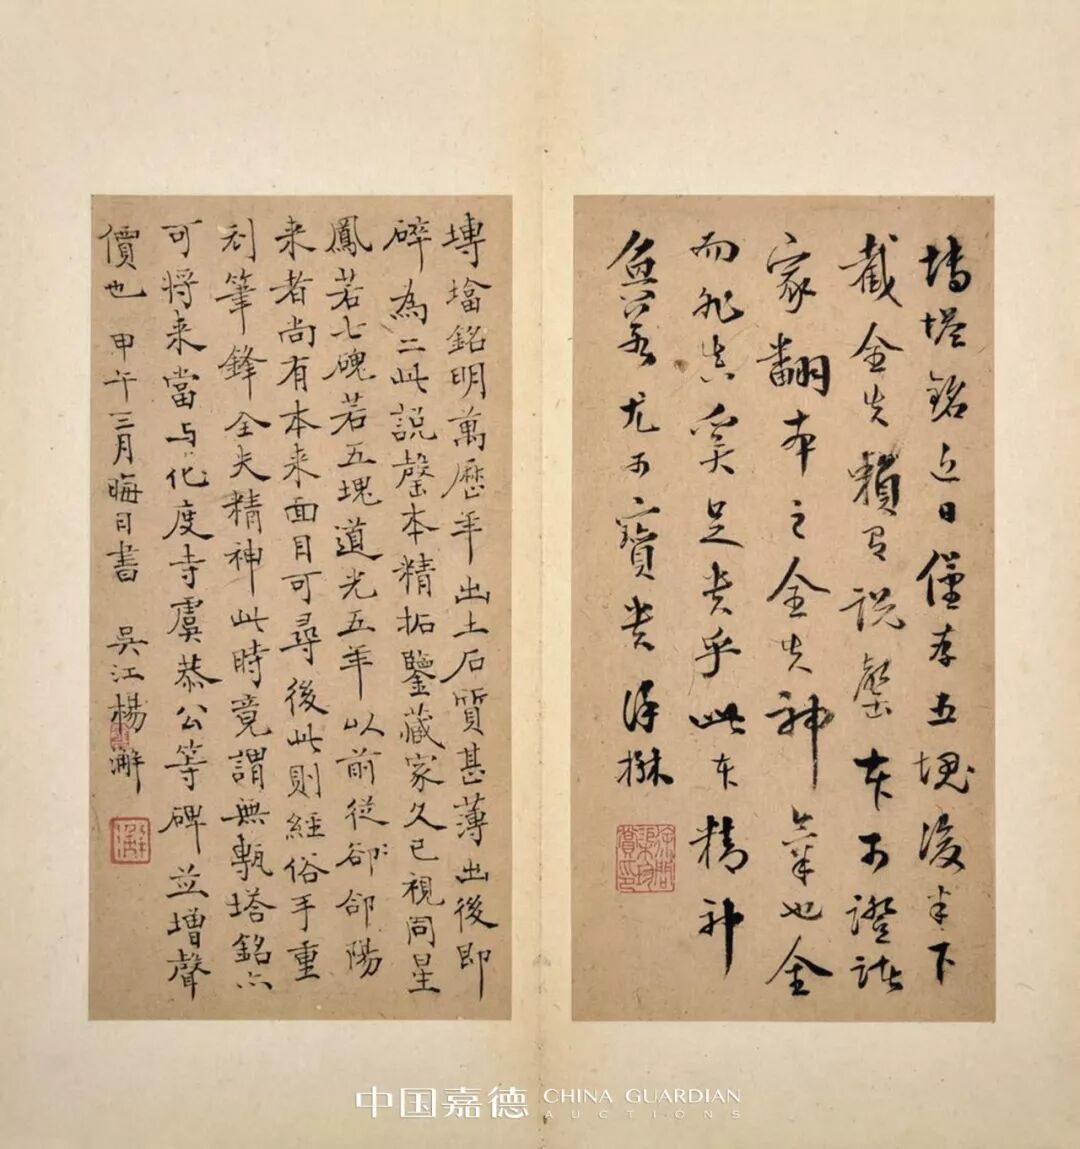 塼塔銘近日僅存五塊後半下
截全失賴有說磬本可證諸
家翻本之全失神氣也全
而非真奚足貴乎此本精神
魚著尤可寶貴 保
塼墖銘明萬歷年出土石質甚薄出後即
碎為二此說磬本精拓鑒藏家久已視同星
鳳若七磈若五塊道光五年以前從郃陽
来者尚有本来面目可尋後此則經俗手重
刻筆鋒全失精神此時竟謂無甎塔銘亦
可将来當与化度寺虞恭公等碑並增聲
價也 甲午三月晦日書 吳江楊澥
澥
中国嘉德 CHINA GUARDIAN
AUCTIONS